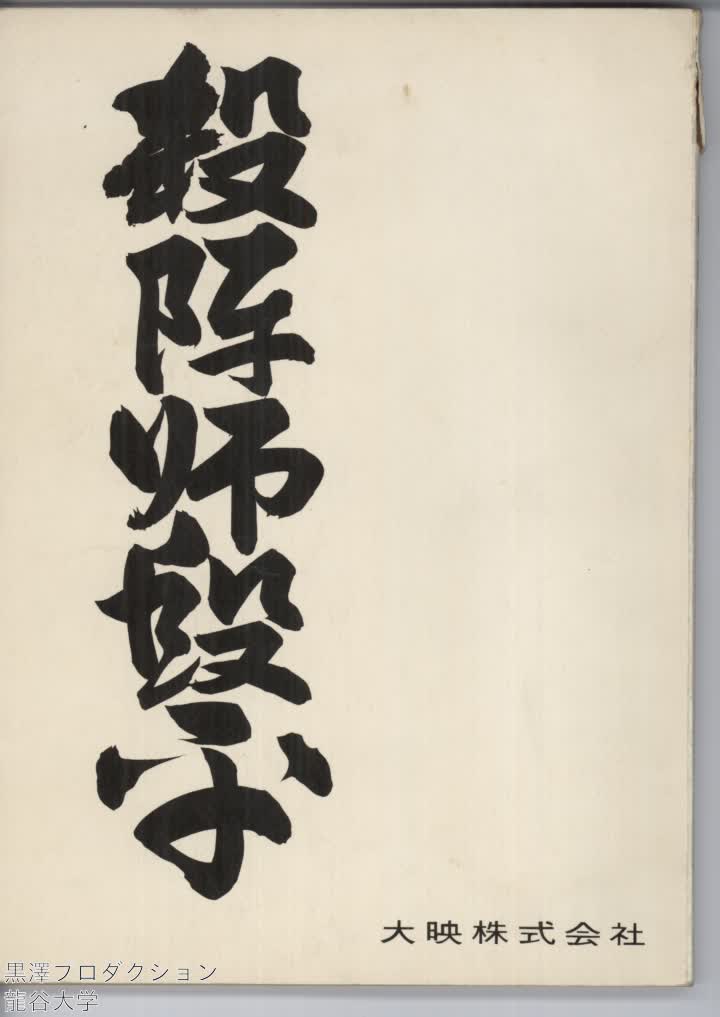 殺陣师段平
大映株式会社
黒澤フロダクション
龍谷大学